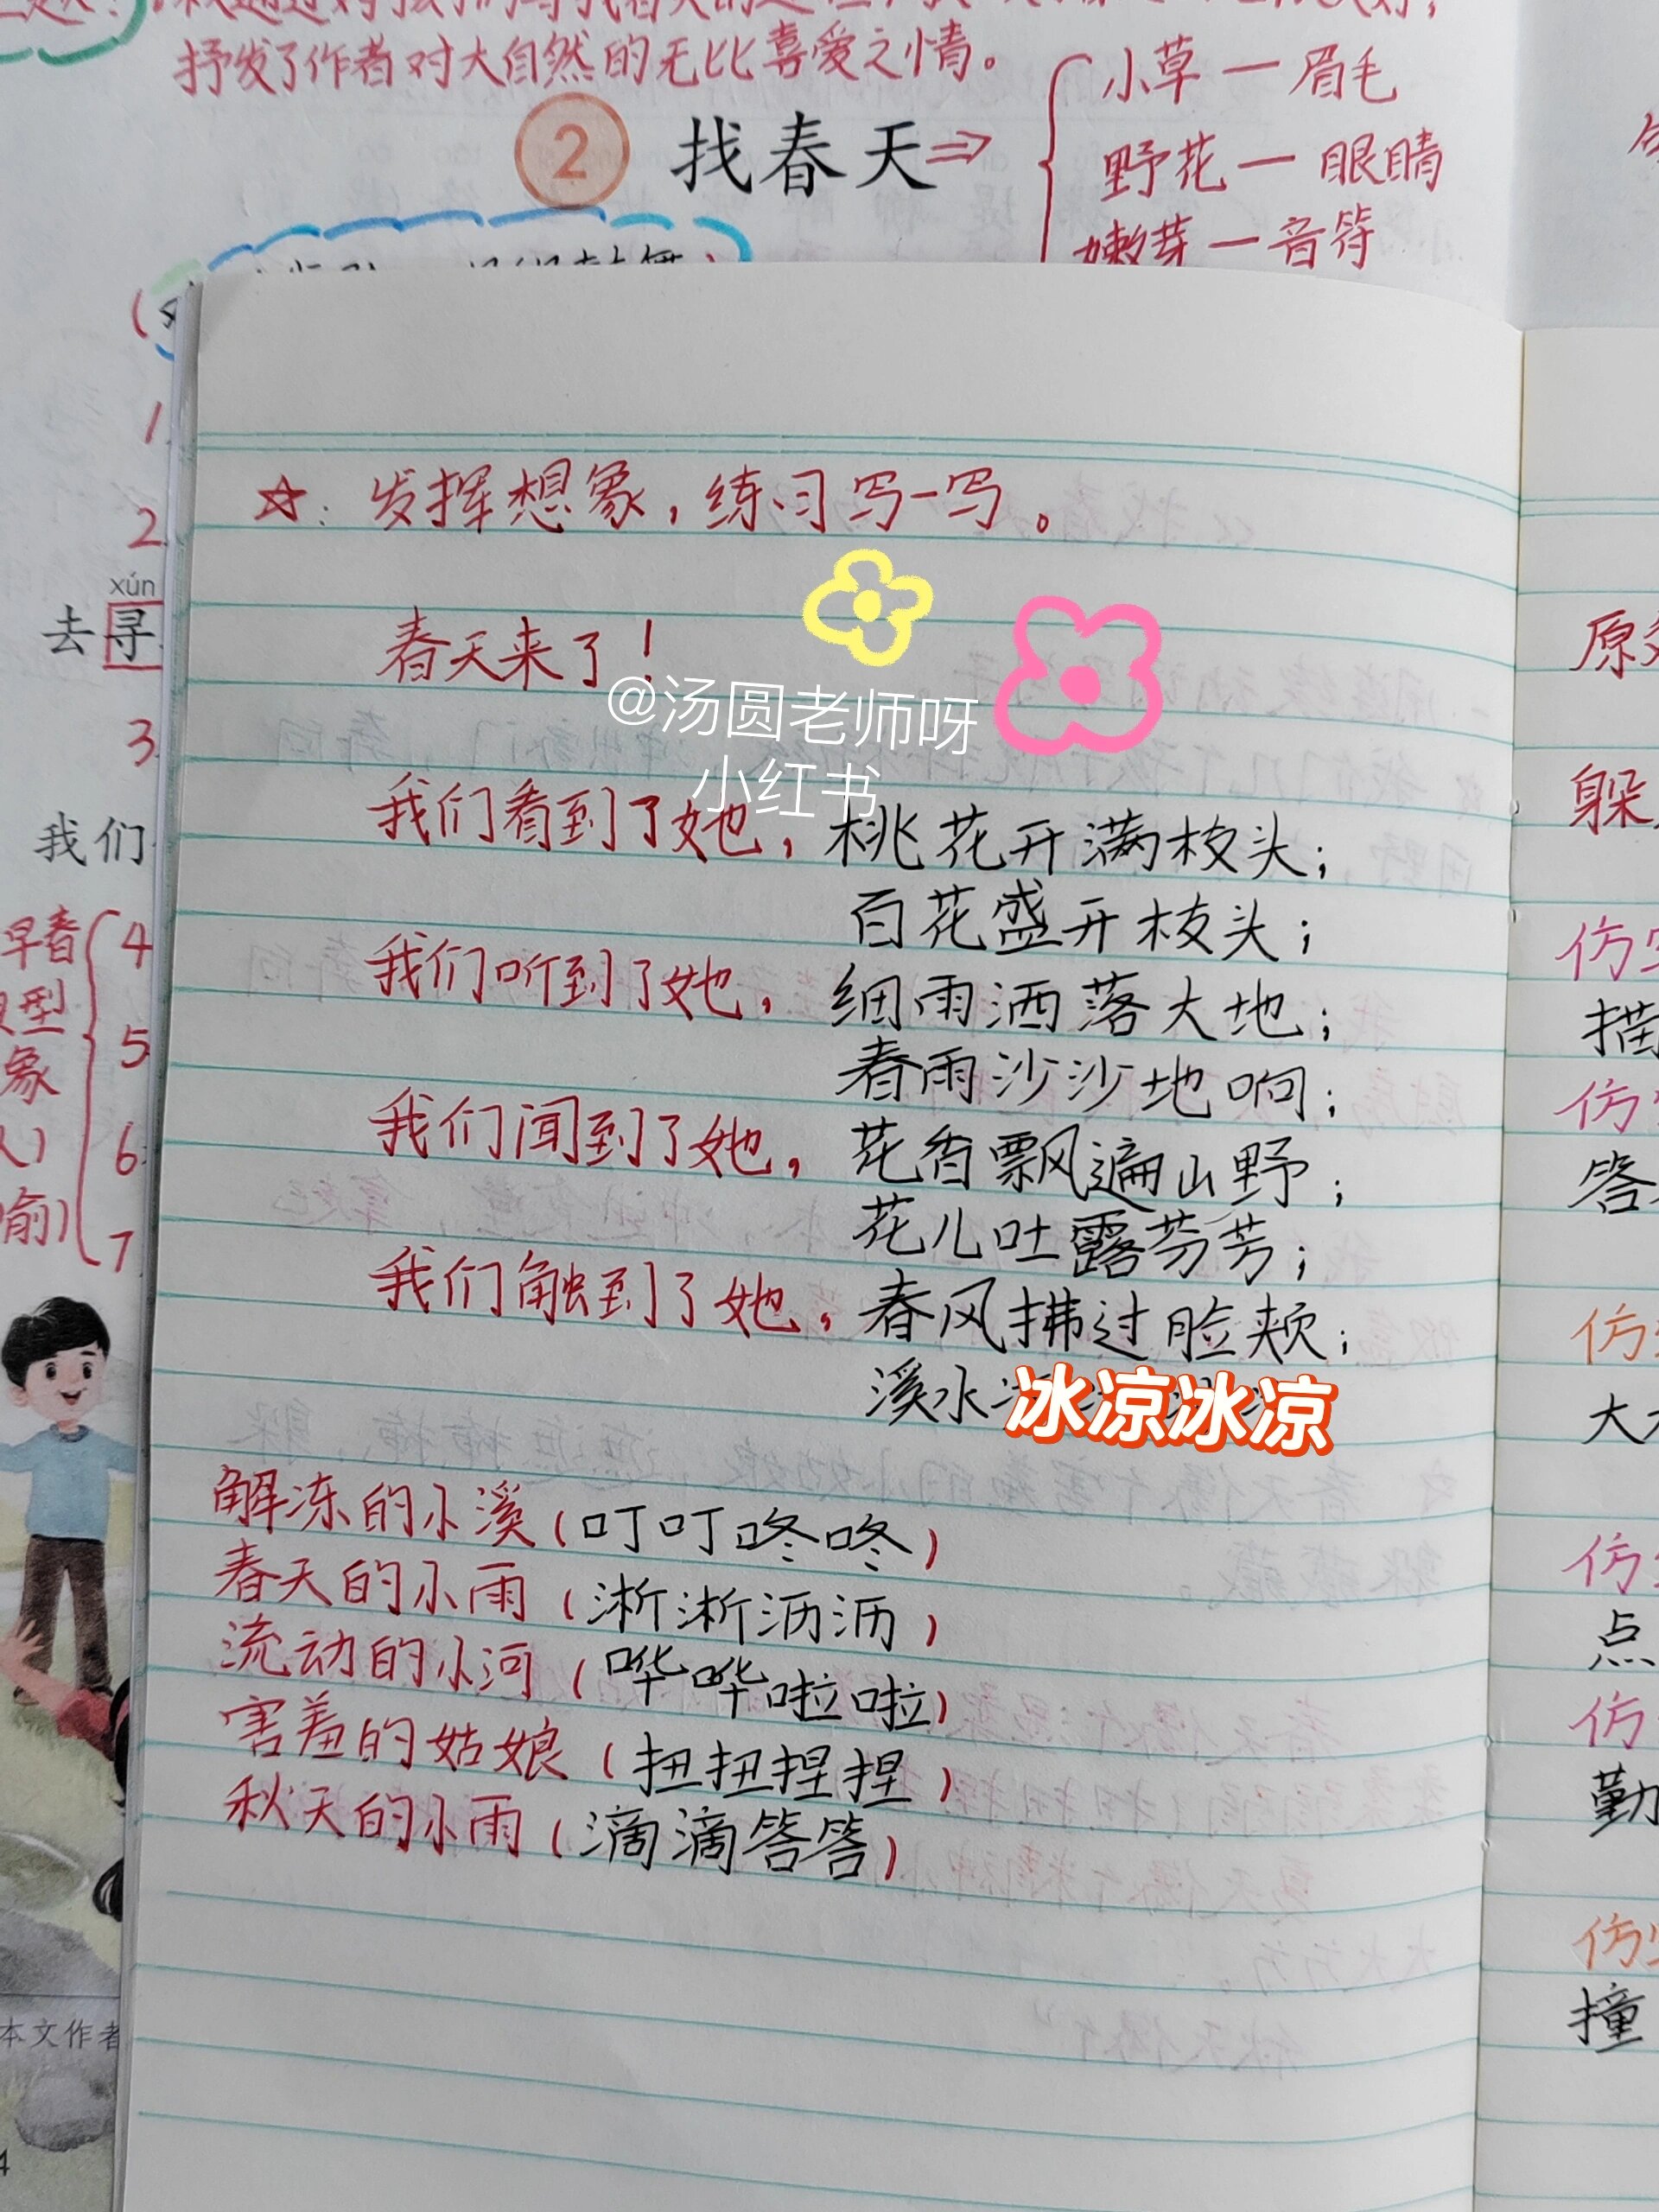 抒发了作者对大自然的无比喜爱之情。
2 找春天⇒
小草—眉毛
野花—眼睛
嫩芽—音符
1.
2.
xún
去寻
3.
我们
早春
4
5
象
6
7
本文作者
4
☆:发挥想象,练习写一写。
春天来了!
@汤圆老师呀
小红书
我们看到了她,桃花开满枝头;
百花盛开枝头;
我们听到了她,细雨洒落大地;
春雨沙沙地响;
我们闻到了她,花香飘遍山野;
花儿吐露芬芳;
我们触到了她,春风拂过脸颊;
溪水冰凉冰凉
解冻的小溪(叮叮咚咚)
春天的小雨(淅淅沥沥)
流动的小河(哗哗啦啦)
害羞的姑娘(扭扭捏捏)
秋天的小雨(滴滴答答)
原
躲
仿
描
仿
答
仿
大
仿
点
仿
勤
仿
撞